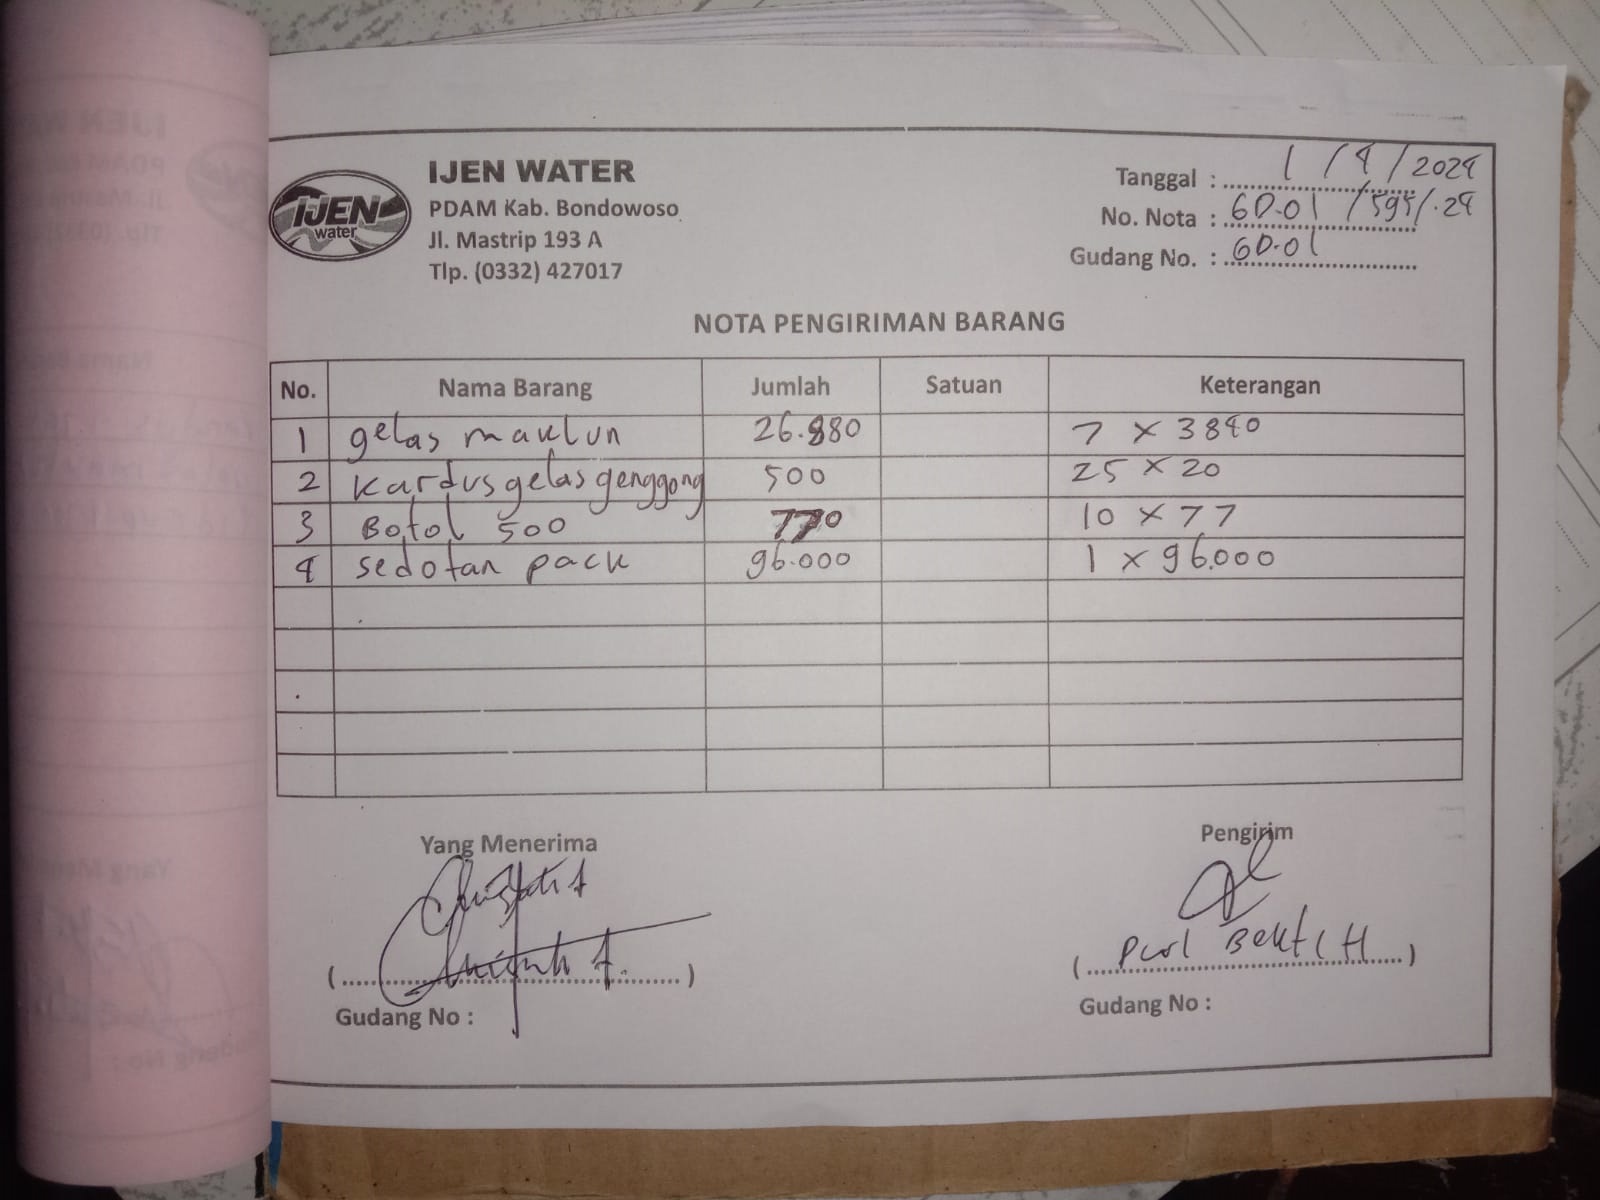 IJEN
water
IJEN WATER
PDAM Kab. Bondowoso
Jl. Mastrip 193 A
Tlp. (0332) 427017
Tanggal : 1 / 4 / 2024
No. Nota : GD.01 / 595 / .24
Gudang No. : GD.01
NOTA PENGIRIMAN BARANG
No. Nama Barang Jumlah Satuan Keterangan
1 gelas maklun 26.880 7 x 3840
2 kardus gelas genggong 500 25 x 20
3 Botol 500 770 10 x 77
4 sedotan pack 96.000 1 x 96.000
Yang Menerima
Pengirim
( )
( H )
Gudang No :
Gudang No :